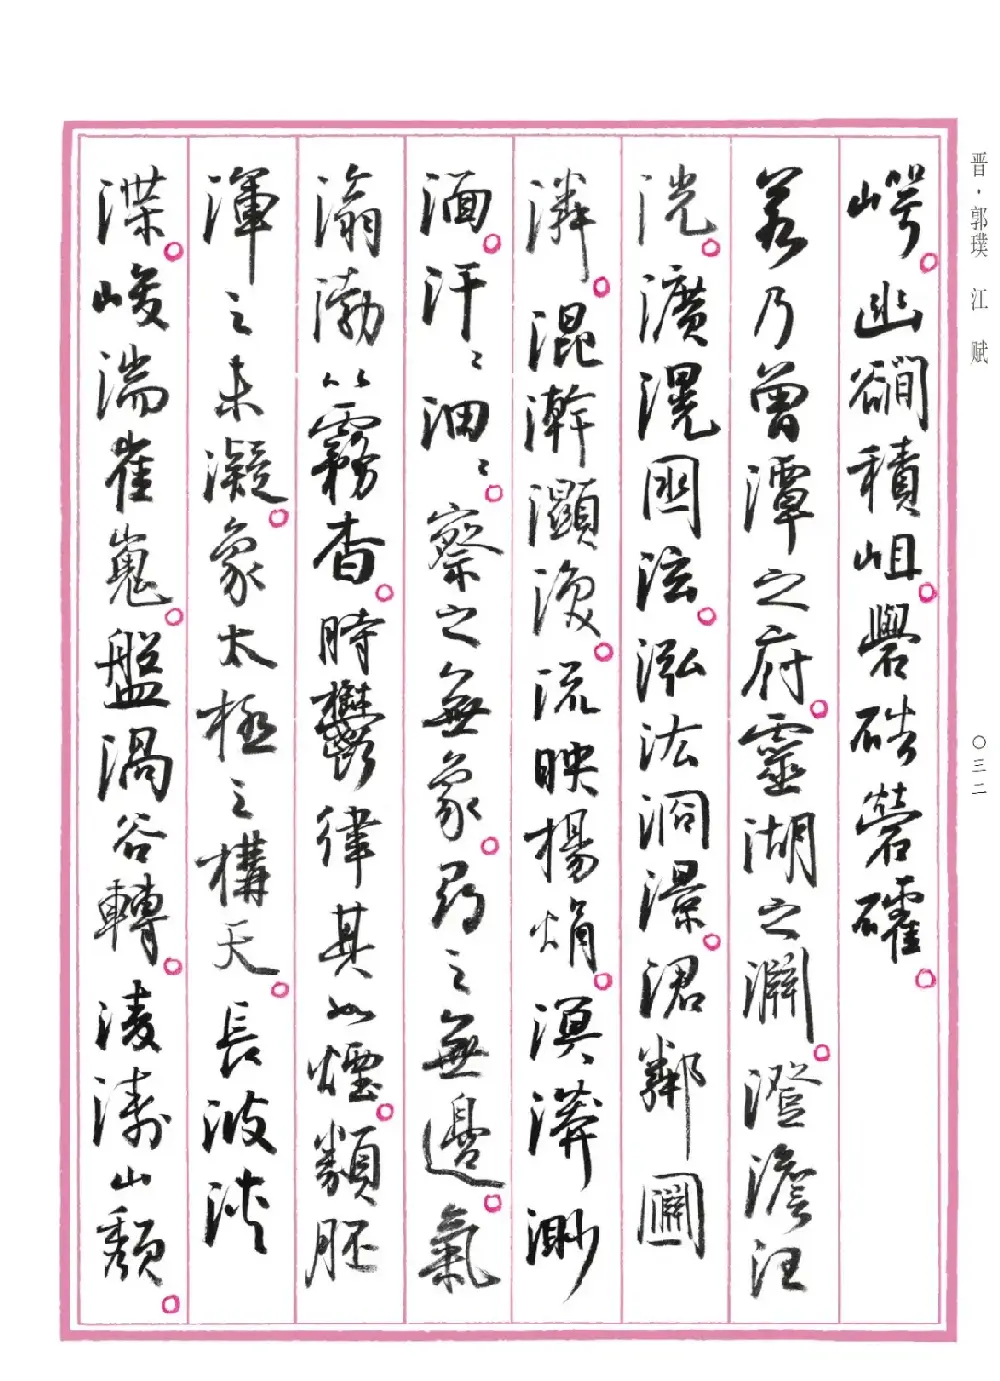 崿。幽㵎積岨。礐硞䓨礭。
若乃曾潭之府。靈湖之淵。澄澹汪
洸。瀇滉囦泫。泓汯浻澋。涒鄰圝
潾。混澣灝渙。流映揚焆。溟漭渺
湎。汗〻沺〻。察之無象。尋之無邊。氣
滃渤以霧杳。時鬱律其如煙。類胚
渾之未凝。象太極之構天。長波浹
渫。峻湍崔嵬。盤渦谷轉。凌濤山頹。
晋·郭璞 江 赋
〇三二